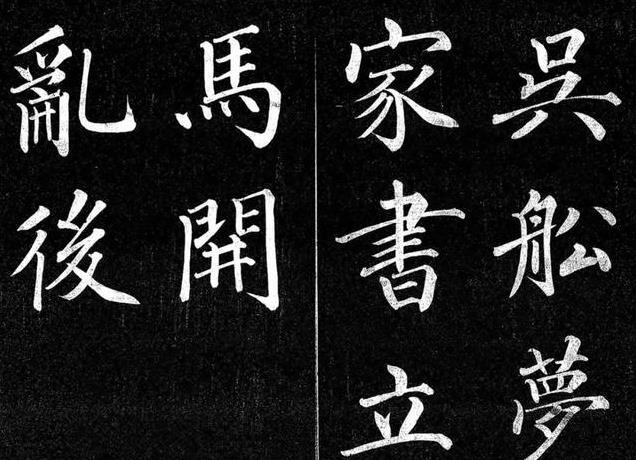 吳舩夢
家書立
馬開
亂後